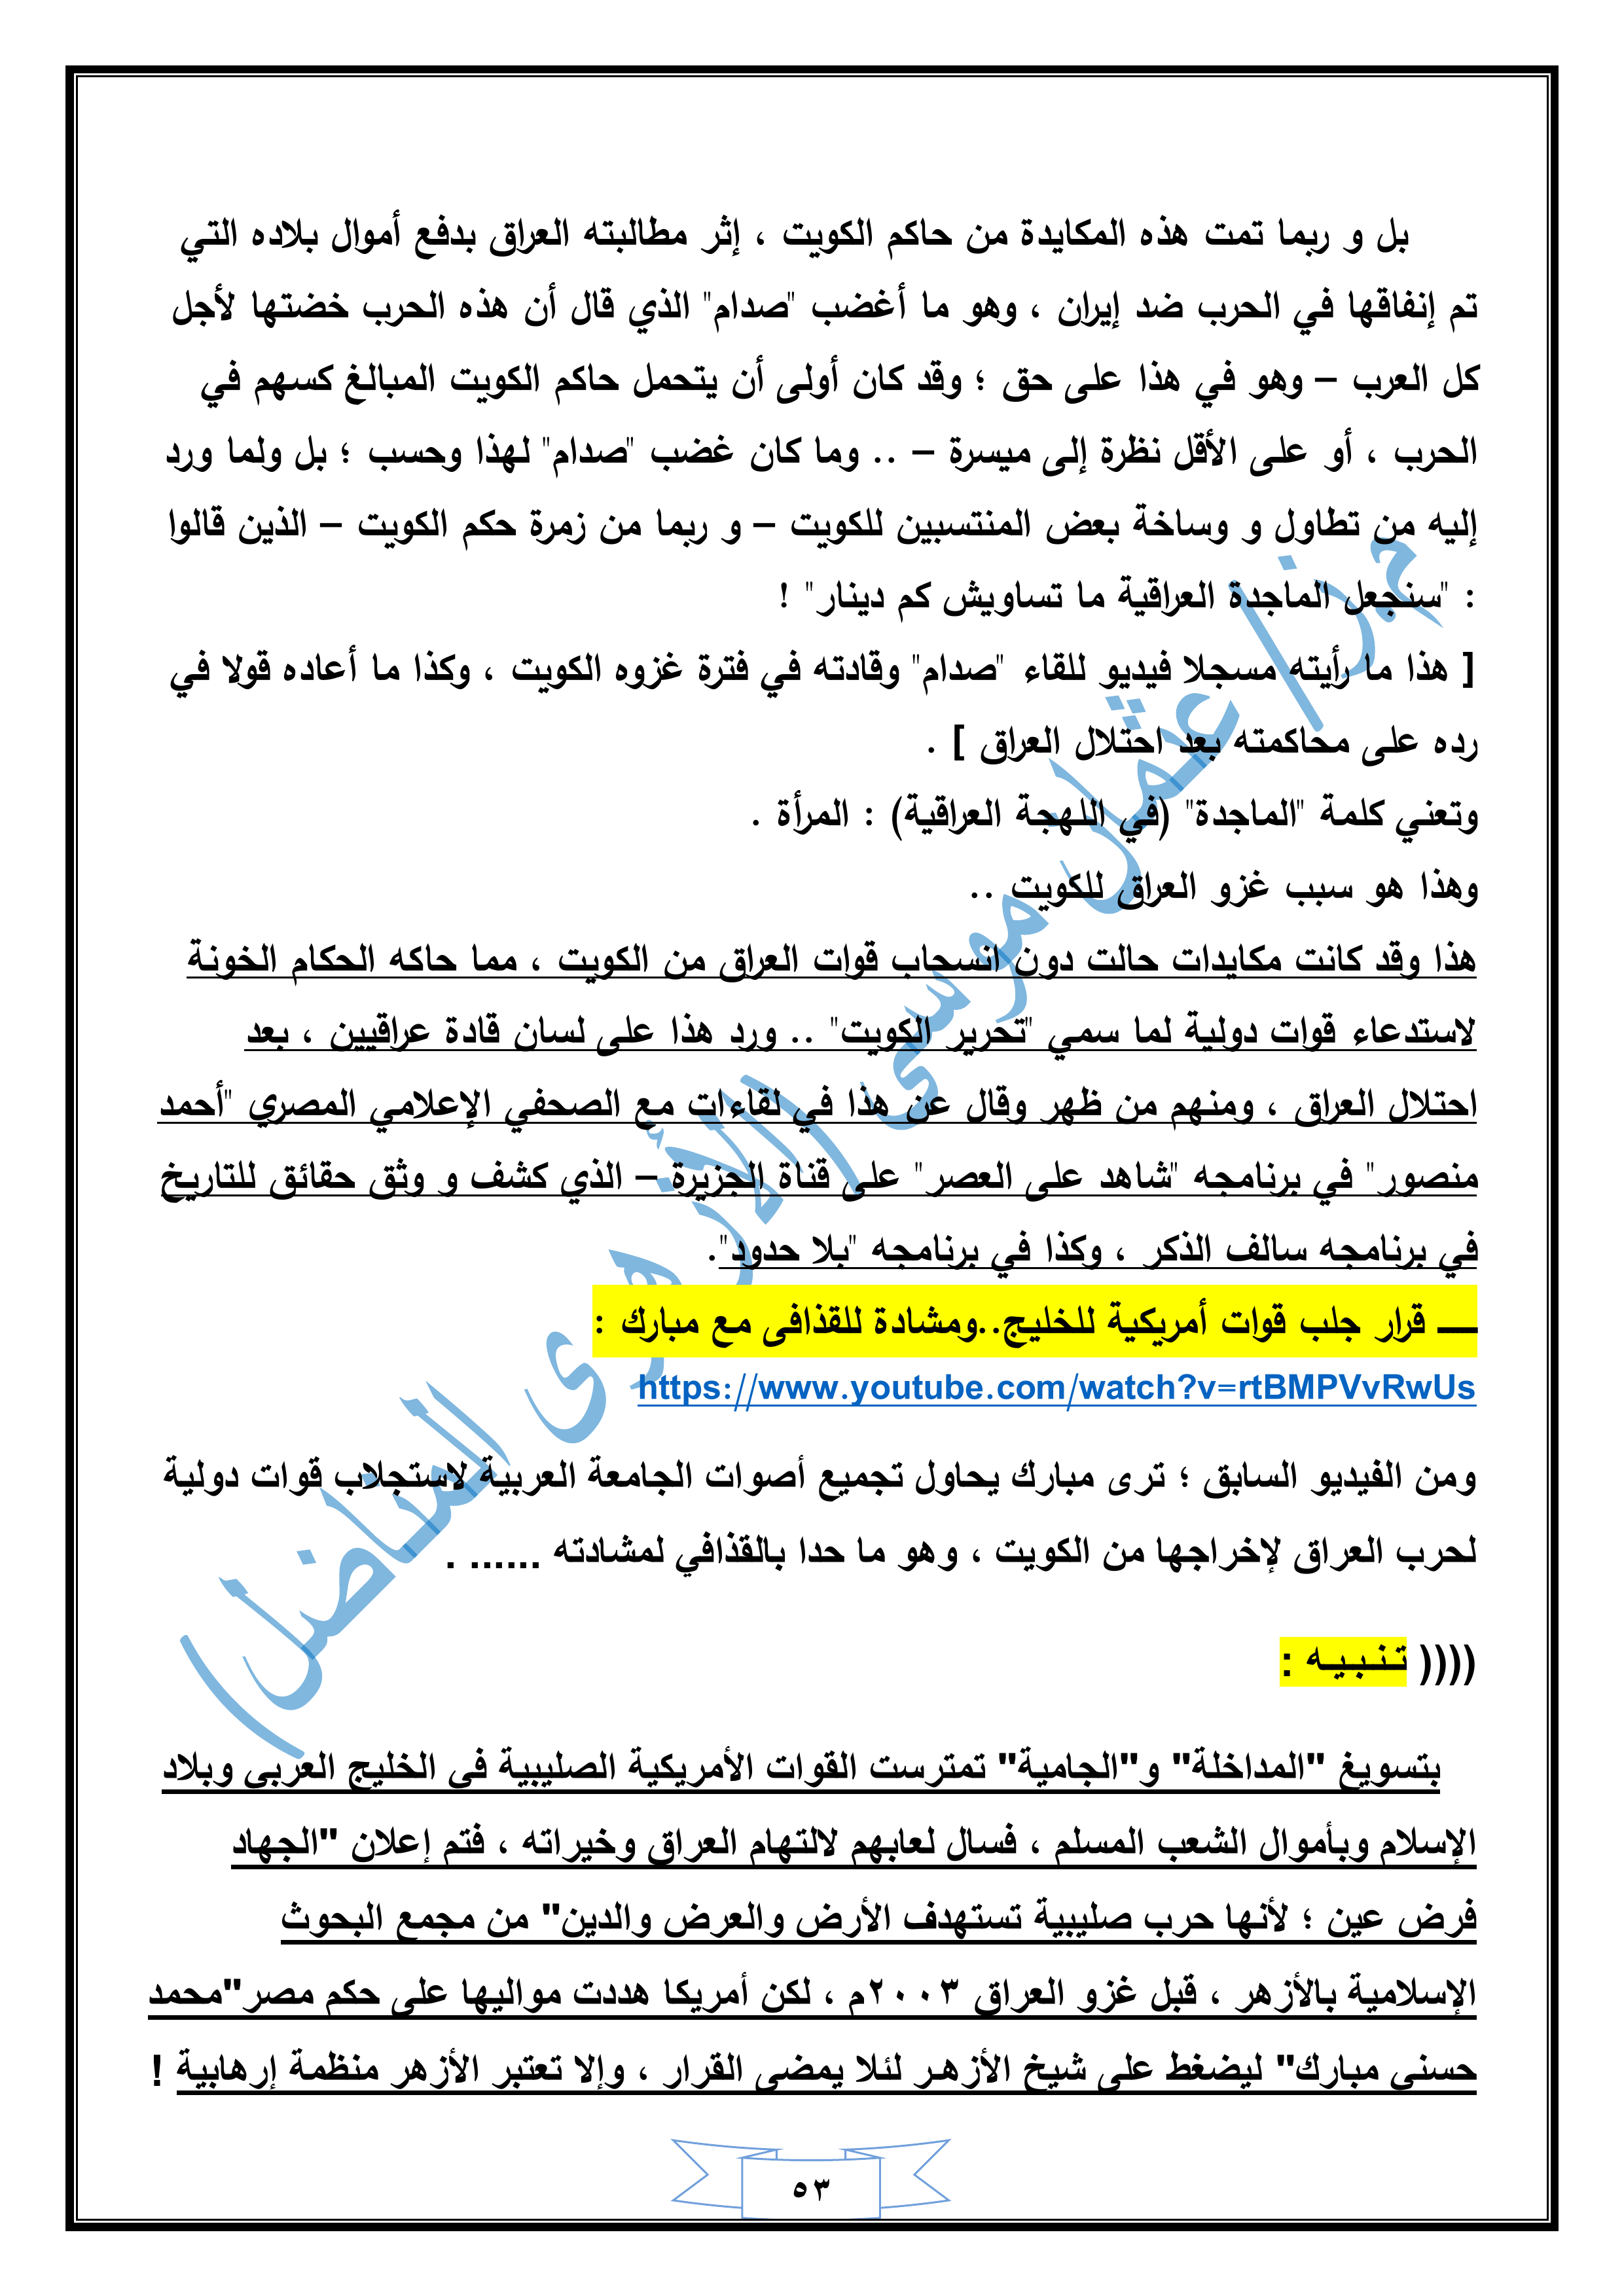 بل و ربما تمت هذه المكايدة من حاكم الكويت ، إثر مطالبته العراق بدفع أموال بلاده التي
تم إنفاقها في الحرب ضد إيران ، وهو ما أغضب "صدام" الذي قال أن هذه الحرب خضتها لأجل
كل العرب – وهو في هذا على حق ؛ وقد كان أولى أن يتحمل حاكم الكويت المبالغ كسهم في
الحرب ، أو على الأقل نظرة إلى ميسرة – .. وما كان غضب "صدام" لهذا وحسب ؛ بل ولما ورد
إليه من تطاول و وساخة بعض المنتسبين للكويت – و ربما من زمرة حكم الكويت – الذين قالوا
: "سنجعل الماجدة العراقية ما تساويش كم دينار" !
[ هذا ما رأيته مسجلا فيديو للقاء "صدام" وقادته في فترة غزوه الكويت ، وكذا ما أعاده قولا في
رده على محاكمته بعد احتلال العراق ] .
وتعني كلمة "الماجدة" (في اللهجة العراقية) : المرأة .
وهذا هو سبب غزو العراق للكويت ..
هذا وقد كانت مكايدات حالت دون انسحاب قوات العراق من الكويت ، مما حاكه الحكام الخونة
لاستدعاء قوات دولية لما سمي "تحرير الكويت" .. ورد هذا على لسان قادة عراقيين ، بعد
احتلال العراق ، ومنهم من ظهر وقال عن هذا في لقاءات مع الصحفي الإعلامي المصري "أحمد
منصور" في برنامجه "شاهد على العصر" على قناة الجزيرة – الذي كشف و وثق حقائق للتاريخ
في برنامجه سالف الذكر ، وكذا في برنامجه "بلا حدود".
ـــ قرار جلب قوات أمريكية للخليج..ومشادة للقذافى مع مبارك :
https://www.youtube.com/watch?v=rtBMPVvRwUs
ومن الفيديو السابق ؛ ترى مبارك يحاول تجميع أصوات الجامعة العربية لاستجلاب قوات دولية
لحرب العراق لإخراجها من الكويت ، وهو ما حدا بالقذافي لمشادته ...... .
(((( تـنـبـيـه :
بتسويغ "المداخلة" و"الجامية" تمترست القوات الأمريكية الصليبية في الخليج العربي وبلاد
الإسلام وبأموال الشعب المسلم ، فسال لعابهم لالتهام العراق وخيراته ، فتم إعلان "الجهاد
فرض عين ؛ لأنها حرب صليبية تستهدف الأرض والعرض والدين" من مجمع البحوث
الإسلامية بالأزهر ، قبل غزو العراق ٢٠٠٣م ، لكن أمريكا هددت مواليها على حكم مصر"محمد
حسني مبارك" ليضغط على شيخ الأزهـر لئلا يمضى القرار ، وإلا تعتبر الأزهر منظمة إرهابية !
٥٣